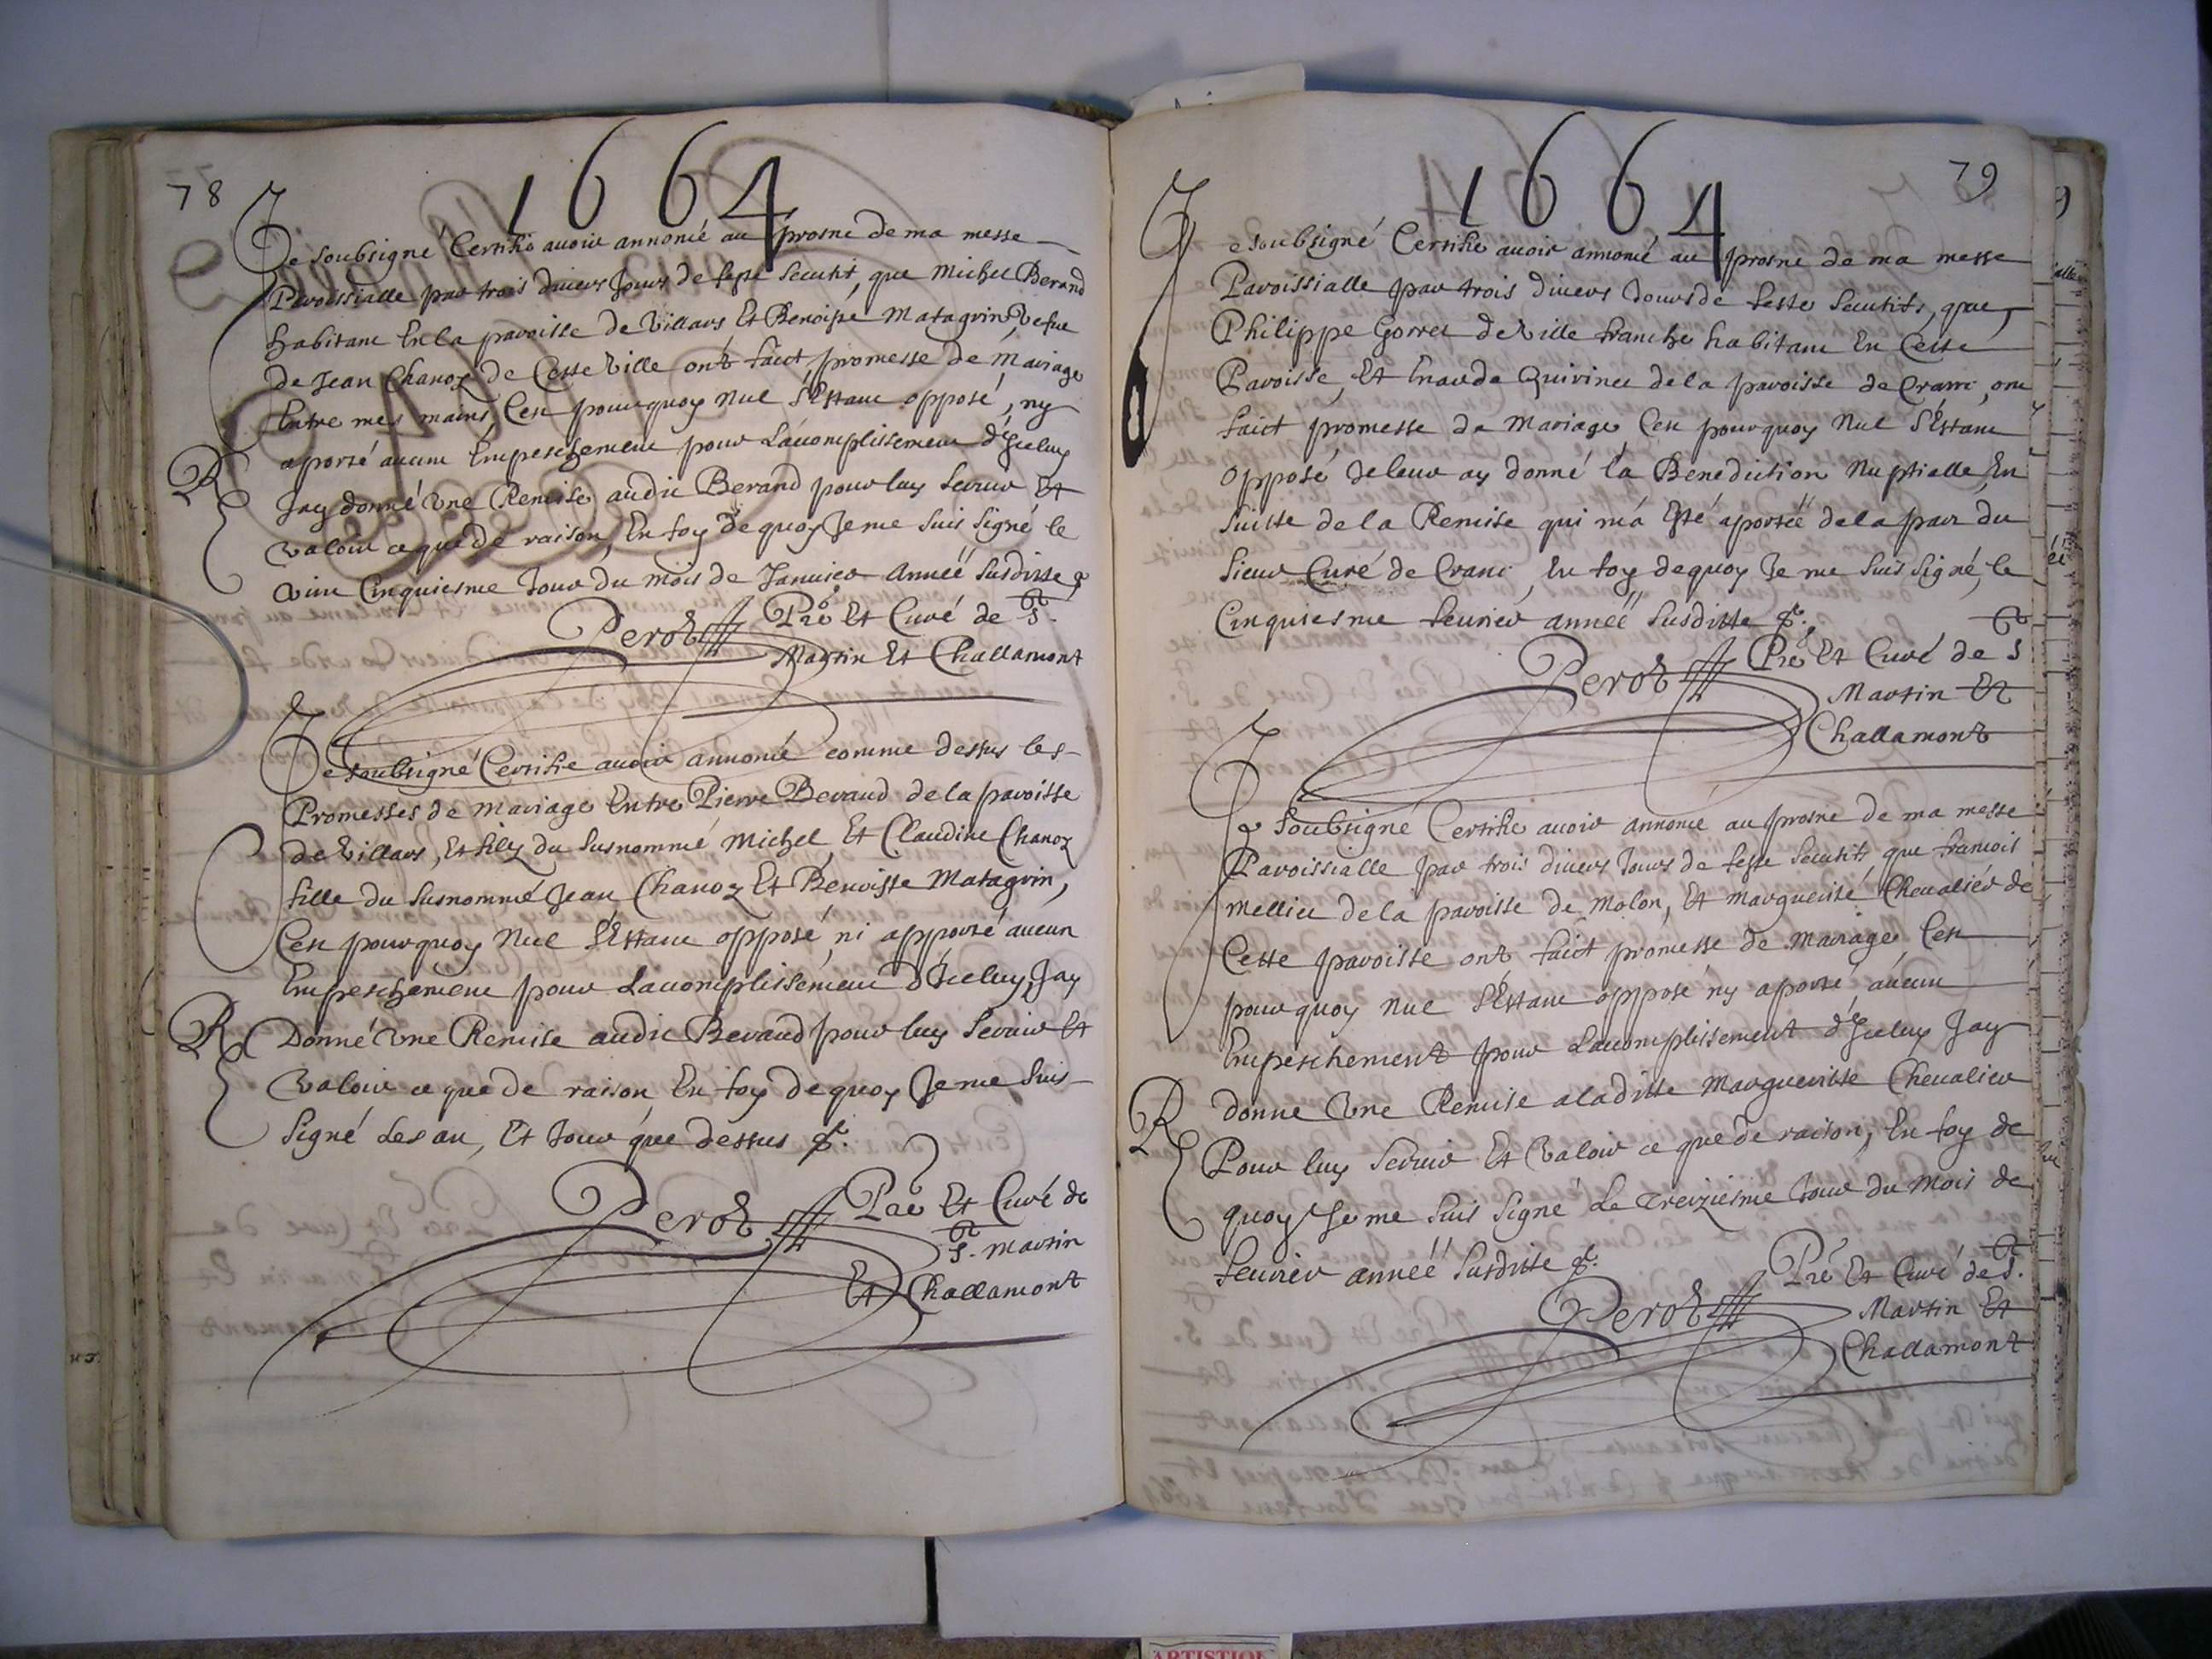 78
1664
Je soubsigné Certifie avoir annoncé au prosne de ma messe
Paroissialle par trois divers Jours de feste secutifs, que Michel Beraud
habitant En la paroisse de Villars Et Benoiste Matagrin Vefve
de Jean Chanoz de Cette Ville ont faict promesse de Mariage
Entre mes mains, C'est pourquoy Nul s'Estant opposé, ny
aporté aucun Empeschement pour L'accomplissement d'Iceluy
R Jay donné Une Remise audit Beraud pour luy servir Et
Valoir ce que de raison, En foy de quoy Je me suis signé le
Vint Cinquiesme Jour du mois de Janvier Année susditte
Perot Pre Et Curé de St.
Martin Et Challamont
Je soubsigné Certifie avoir annoncé comme dessus les
Promesses de Mariage Entre Pierre Beraud de la paroisse
de Villars, Et filz du susnommé Michel, Et Claudine Chanoz
fille du susnommé Jean Chanoz Et Benoiste Matagrin,
C'est pourquoy Nul s'Estant opposé, ni apporté aucun
Empeschement pour L'accomplissement d'Iceluy, Jay
R Donné Une Remise audit Beraud pour luy servir Et
Valoir ce que de raison En foy de quoy Je me suis
signé Les an, Et Jour que dessus &.
Perot Pre Et Curé de
St. Martin
Et Challamont
79
1664
Je soubsigné Certifie avoir annoncé au prosne de ma messe
Paroissialle par trois divers Jours de feste secutifs, que
Philippe Gorret de Ville franche habitant En Cette
Paroisse, Et Enarde Quirinet de la paroisse de Crans, ont
faict promesse de Mariage, C'est pourquoy Nul s'Estant
opposé Je leur ay donné la Benediction Nuptialle, En
suitte de la Remise qui m'a Esté aportée de la part du
Sieur Curé de Crans, En foy de quoy Je me suis signé, le
Cinquiesme fevrier année susditte &.
Perot Pre Et Curé de St
Martin Et
Challamont
Je soubsigné Certifie avoir annoncé au prosne de ma messe
Paroissialle par trois divers Jours de feste secutifs que francois
Mellier de la paroisse de Molon, Et margueritte Chevalier de
Cette paroisse ont faict promesse de Mariage C'est
pourquoy Nul s'Estant opposé ny aporté aucun
Empeschement pour L'accomplissement d'Iceluy Jay
R donné Une Remise a laditte Margueritte Chevalier
Pour luy servir Et Valoir ce que de raison, En foy de
quoy Je me suis signé Le Treiziesme Jour du Mois de
fevrier année susditte &.
Perot Pre Et Curé de St.
Martin Et
Challamont